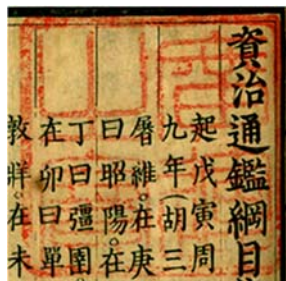 資治通鑑綱目
起戊寅周
九年(胡三
屠維。在庚
曰昭陽。在
丁曰彊圉。
在卯曰單
敦牂。在未